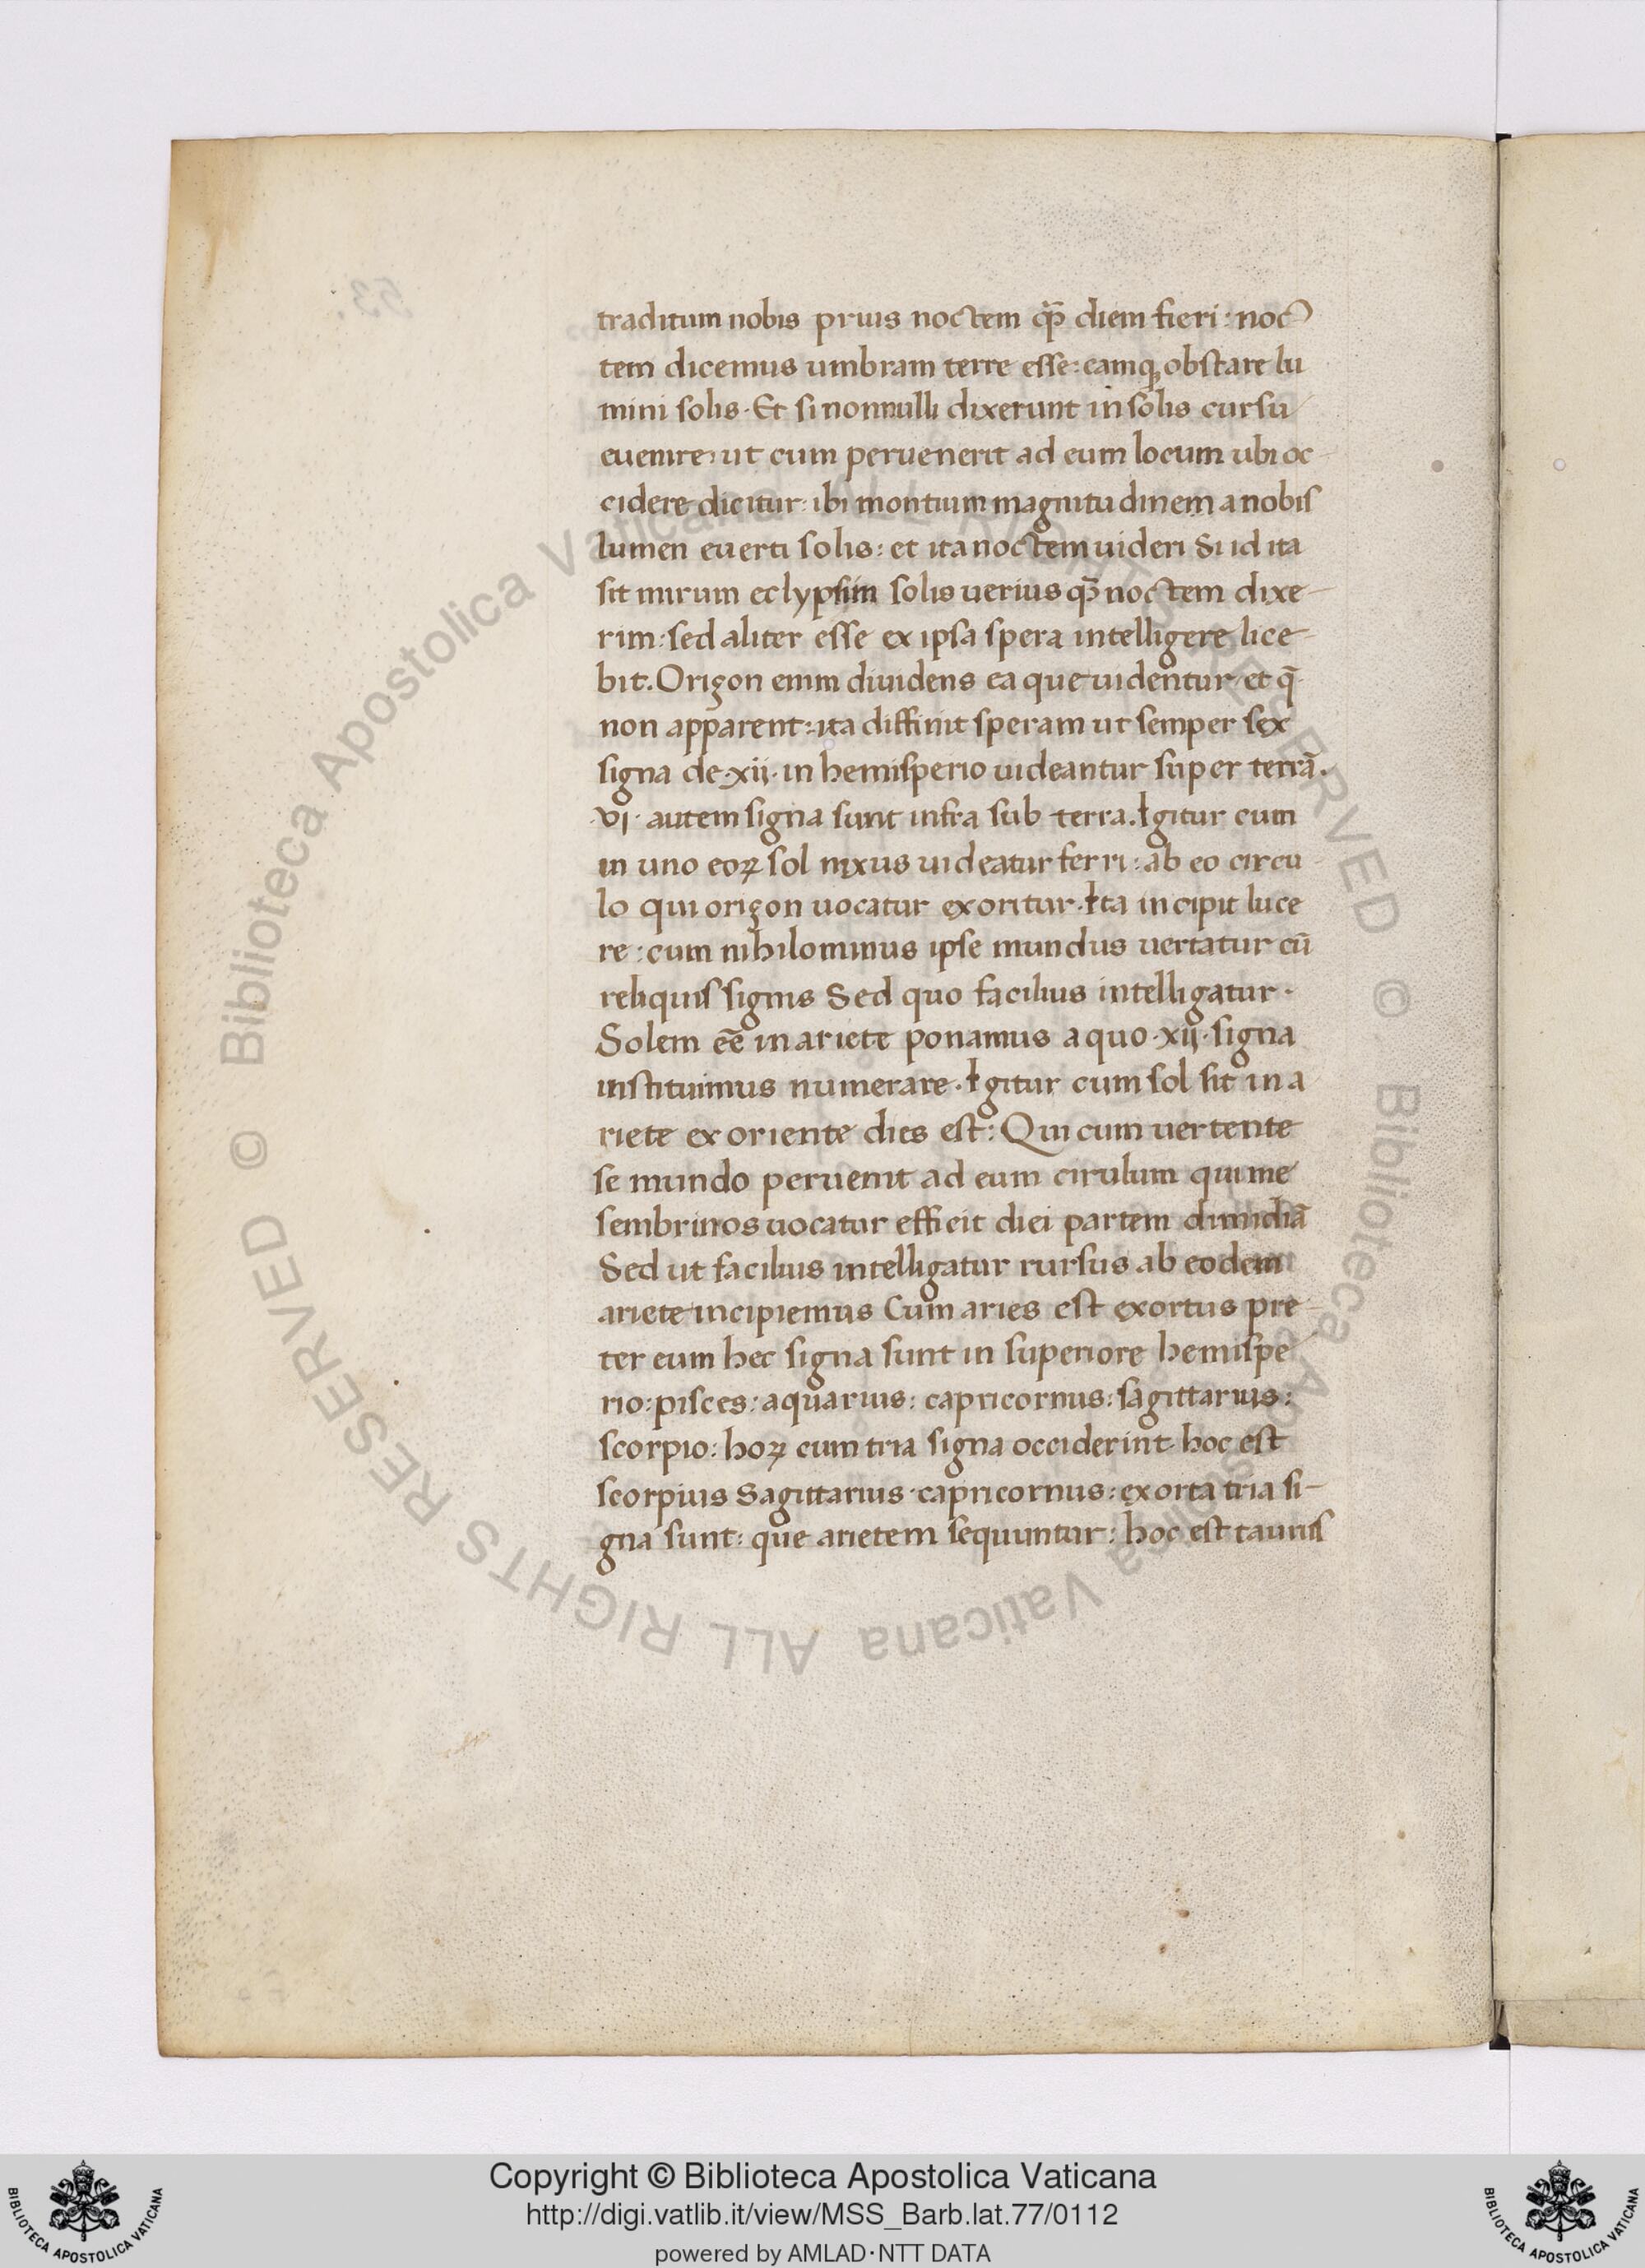 traditum nobis prius noctem qꝫ̃ diem fieri: noc
tem dicemus umbram terre esse: eamqꝫ obstare lu
mini solis. Et si nonnulli dixerunt in solis cursu
euenire, ut cum peruenerit ad eum locum ubi oc
cidere dicitur: ibi montium magnitudinem a nobis
lumen euerti solis: et ita noctem uideri Si id ita
sit mirum eclypsim solis uerius qꝫ̃ noctem dixe
rim: sed aliter esse ex ipsa spera intelligere lice
bit. Orizon enim diuidens ea que uidentur et q̃
non apparent: ita diffinit speram ut semper sex
signa de .xij. in hemisperio uideantur super terrã.
.vj. autem signa sunt infra sub terra. Igitur cum
in uno eoꝝ sol nixus uideatur ferri: ab eo circu
lo qui orizon uocatur exoritur. Ita incipit luce
re: cum nihilominus ipse mundus uertatur cũ
reliquis signis Sed quo facilius intelligatur.
Solem eẽ in ariete ponamus a quo .xij. signa
instituimus numerare. Igitur cum sol sit in a
riete exoriente dies est: Qui cum uertente
se mundo peruenit ad eum cirulum qui me
sembrinos uocatur efficit diei partem dimidiã
Sed ut facilius intelligatur rursus ab eodem
ariete incipiemus Cum aries est exortus pre
ter eum hec signa sunt in superiore hemispe
rio: pisces: aquarius: capricornus: sagittarius:
scorpio: hoꝝ cum tria signa occiderint hoc est
scorpius Sagittarius capricornus: exorta tria si-
gna sunt: que arietem sequuntur: hoc est taurus
© Biblioteca Apostolica Vaticana ALL RIGHTS RESERVED © Biblioteca Apostolica Vaticana ALL RIGHTS RESERVED
BIBLIOTECA APOSTOLICA VATICANA
Copyright © Biblioteca Apostolica Vaticana
http://digi.vatlib.it/view/MSS_Barb.lat.77/0112
powered by AMLAD·NTT DATA
BIBLIOTECA APOSTOLICA VATICANA